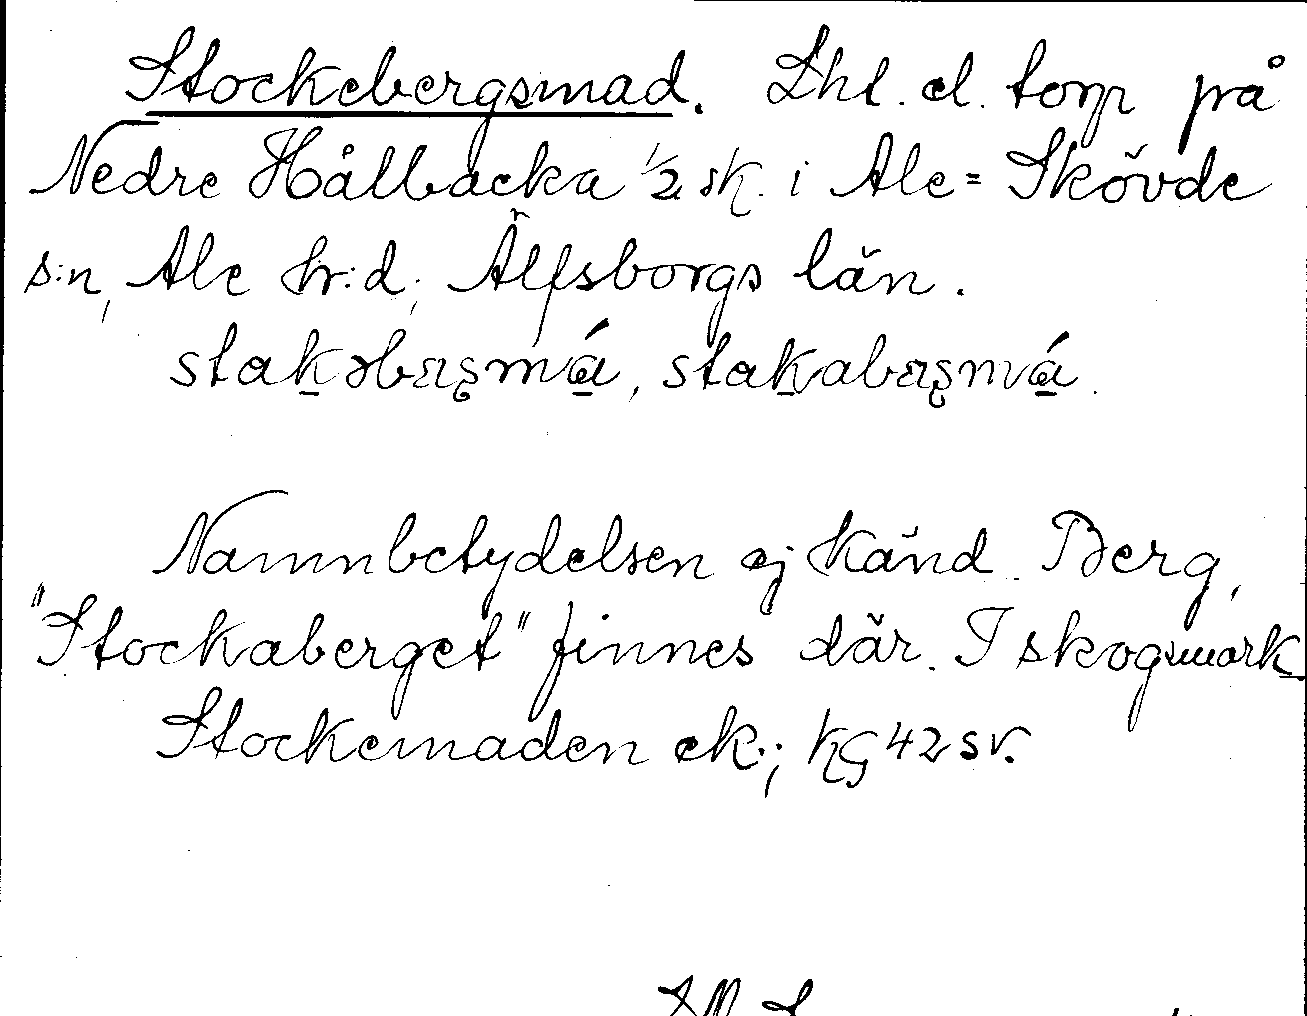 Stockebergsmad. Lht. el. torp på
Nedre Hålbacka 1/2 sk. i Ale=Skövde
s:n, Ale hr:d, Älfsborgs län.
Namnbetydelsen ej känd. Berg,
"Stockaberget" finnes där. I skogsmark.
Stockemaden ek.; kG 42 sv.